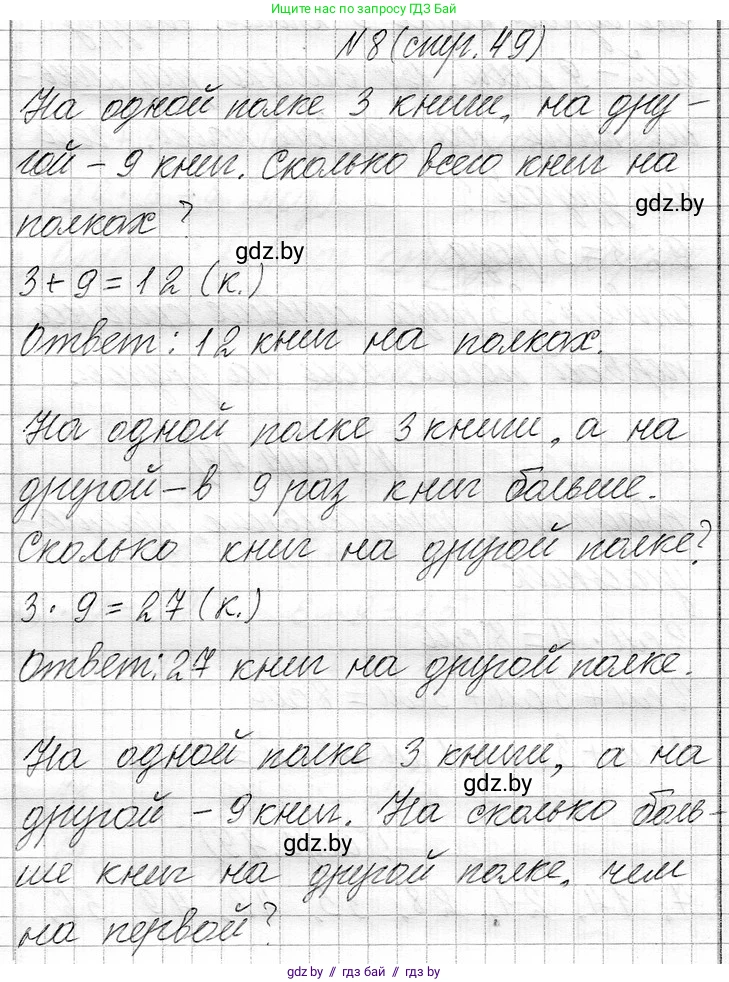 Ищите нас по запросу ГДЗ БАЙ
№8 (стр. 49)
На одной полке 3 книги, на дру-
гой – 9 книг. Сколько всего книг на
gdz.by
полках?
gdz.by
3 + 9 = 12 (к.)
Ответ: 12 книг на полках.
На одной полке 3 книги, а на
другой – в 9 раз книг больше.
Сколько книг на другой полке?
3 · 9 = 27 (к.)
Ответ: 27 книг на другой полке.
На одной полке 3 книги, а на
gdz.by
другой – 9 книг. На сколько боль-
gdz.by
ше книг на другой полке, чем
на первой?
gdz.by // гдз бай // гдз by